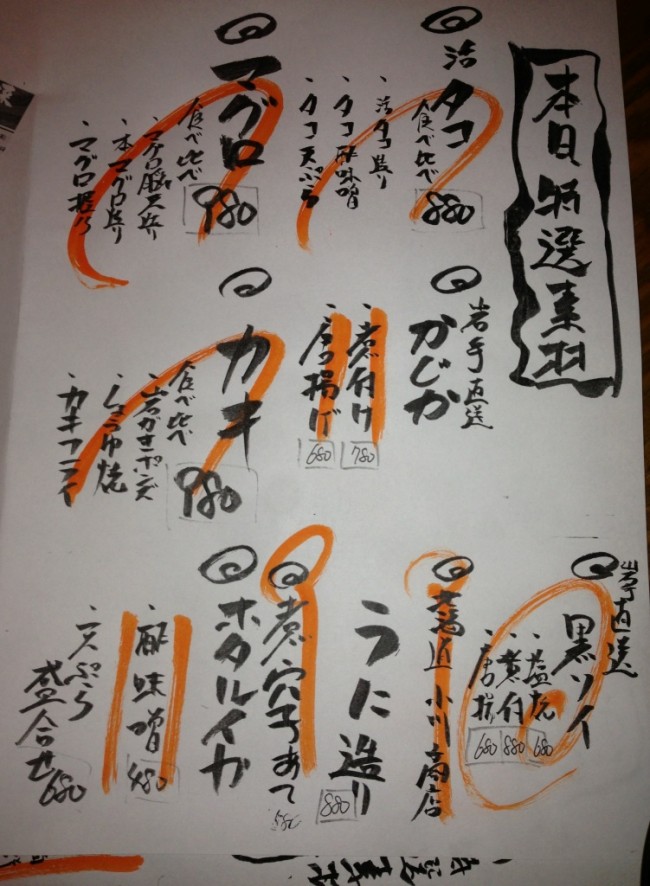 本日特選素材
活タコ
食べ比べ
880
、活タコ造り
、タコ酢味噌
、タコ天ぷら
マグロ
食べ比べ
980
、マグロ脳天造り
、本マグロ造り
、マグロ握り
岩手直送
かじか
、煮付け 780
、唐揚げ 680
カキ
食べ比べ
980
、岩ガキポン酢
、しょうゆ焼
、カキフライ
岩手直送
黒ソイ
、塩焼 680
、煮付 880
、唐揚 680
北海道 小川商店
うに造り
880
煮穴子あて
580
ホタルイカ
、酢味噌 480
、天ぷら
盛合せ 680